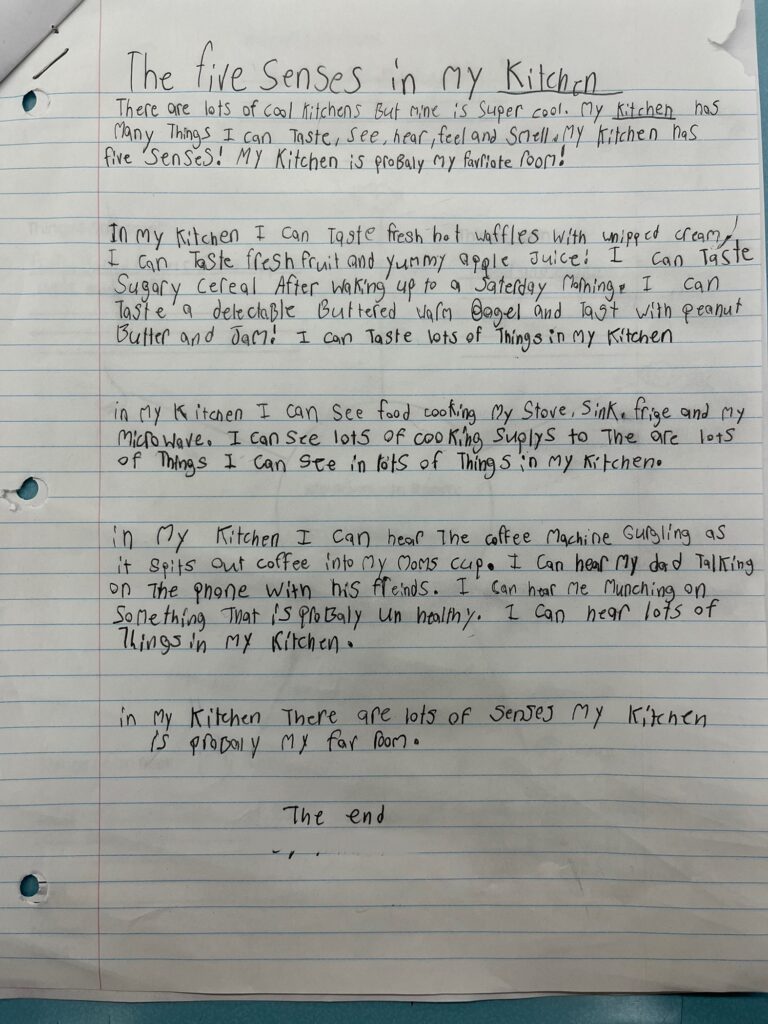 The five senses in my Kitchen
There are lots of cool Kitchens But mine is super cool. My Kitchen has
Many Things I can Taste, see, hear, feel and smell. My Kitchen has
five senses! My Kitchen is probaly my farriote room!
In my Kitchen I can Taste fresh hot waffles with whipped cream,
I can Taste fresh fruit and yummy apple Juice! I can Taste
Sugary cereal After waking up to a Saterday Morning. I can
Taste a delectable Buttered warm Bagel and Tast with peanut
Butter and Jam! I can Taste lots of Things in my Kitchen
in my Kitchen I can see food cooking My Stove, Sink, frige and my
Microwave. I can see lots of cooking Suplys to The are lots
of Things I can see in lots of Things in my Kitchen.
in My Kitchen I can hear The coffee Machine Gurgling as
it spits out coffee into my Moms cup. I can hear My dad Talking
on The phone with his freinds. I can hear Me Munching on
Something That is proBaly un healthy. I can hear lots of
Things in my Kitchen.
in my Kitchen There are lots of senses My Kitchen
is probaly my far room.
The end